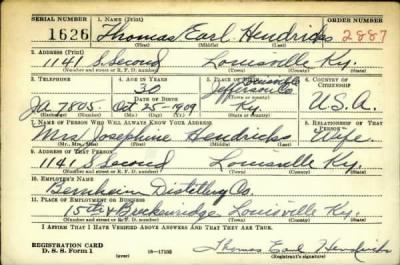 SERIAL NUMBER 1. NAME (Print) ORDER NUMBER
1626 Thomas Earl Hendricks 2887
(First) (Middle) (Last)
2. ADDRESS (Print)
1141 S. Second Louisville Ky.
(Number and street or R. F. D. number) (Town) (County) (State)
3. TELEPHONE 4. AGE IN YEARS 5. PLACE OF BIRTH 6. COUNTRY OF CITIZENSHIP
30 Louisville
Jefferson Co.
DATE OF BIRTH (Town or county)
JA 7805 Oct 25-1909 Ky. U.S.A.
(Exchange) (Number) (Mo.) (Day) (Yr.) (State or country)
7. NAME OF PERSON WHO WILL ALWAYS KNOW YOUR ADDRESS 8. RELATIONSHIP OF THAT PERSON
Mrs. Josephine Hendricks Wife
(Mr., Mrs., Miss) (First) (Middle) (Last)
9. ADDRESS OF THAT PERSON
1141 S. Second Louisville Ky.
(Number and street or R. F. D. number) (Town) (County) (State)
10. EMPLOYER'S NAME
Bernheim Distillery Co.
11. PLACE OF EMPLOYMENT OR BUSINESS
15th & Breckenridge Louisville Ky.
(Number and street or R. F. D. number) (Town) (County) (State)
I AFFIRM THAT I HAVE VERIFIED ABOVE ANSWERS AND THAT THEY ARE TRUE.
REGISTRATION CARD
D. S. S. Form 1 (over) 16-17105 Thomas Earl Hendricks